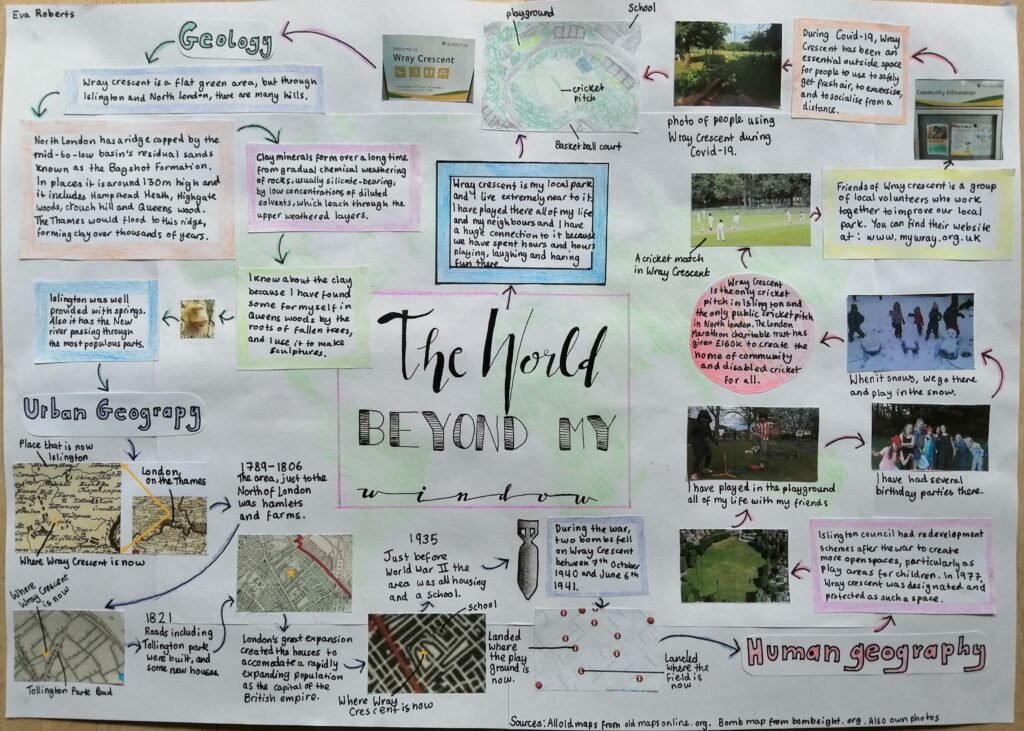 Eva Roberts
Geology
Wray crescent is a flat green area, but through
Islington and North London, there are many hills.
North London has a ridge capped by the
mid-to-low basin's residual sands
known as the Bagshot Formation.
In places it is around 130m high and
it includes Hampstead Heath, Highgate
woods, crouch hill and Queens wood.
The Thames would flood to this ridge,
forming clay over thousands of years.
Clay minerals form over a long time
from gradual chemical weathering
of rocks, usually silicate-bearing,
by low concentrations of diluted
solvents, which leach through the
upper weathered layers.
I know about the clay
because I have found
some for myself in
Queens woods by the
roots of fallen trees,
and I use it to make
sculptures.
Islington was well
provided with springs.
Also it has the New
river passing through
the most populous parts.
Urban Geograpy
Place that is now
Islington
London,
on the Thames
Where Wray Crescent is now
1789-1806
The area, just to the
North of London
was hamlets
and farms.
Where
Wray Crescent
is now
Tollington Park Road
1821
Roads including
Tollington park
were built, and
some new houses.
London's great expansion
created the houses to
accomodate a rapidly
expanding population
as the capital of the
British empire.
1935
Just before
World War II the
area was all housing
and a School.
school
Where Wray
Crescent is now
During the war,
two bombs fell
on Wray Crescent
between 7th October
1940 and June 6th
1941.
Landed
where
the play
ground is
now.
Landed
where the
field is
now
Human geography
Islington council had redevelopment
schemes after the war to create
more open spaces, particularly as
play areas for children. In 1977,
Wray crescent was designated and
protected as such a space.
I have played in the playground
all of my life with my friends
I have had several
birthday parties there.
When it snows, we go there
and play in the snow.
Wray Crescent
Is the only cricket
pitch in Islington and
the only public cricket pitch
in North london. The London
Marathon charitable trust has
given £160k to create the
home of community
and disabled cricket
for all.
A cricket match
in Wray Crescent
Friends of Wray crescent is a group
of local volunteers who work
together to improve our local
park. You can find their website
at: www.mywray.org.uk
Community Information
During Covid-19, Wray
Crescent has been an
essential outside space
for people to use to safely
get fresh air, to excersise,
and to socialise from a
distance.
photo of people using
Wray Crescent during
Covid-19.
playground
School
cricket
pitch
Basketball court
ISLINGTON
Welcome to
Wray Crescent
Wray crescent is my local park
and I live extremely near to it.
I have played there all of my life
and my neighbours and I have
a huge connection to it because
we have spent hours and hours
playing, laughing and having
fun there.
The World
BEYOND MY
window
Sources: All old maps from old maps online.org. Bomb map from bombsight.org. Also own photos